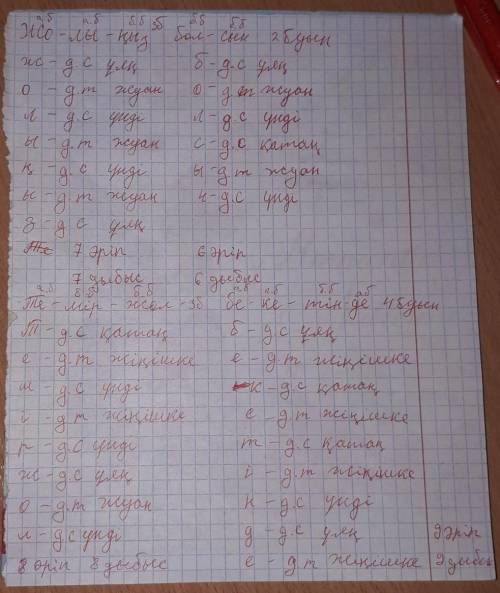 а.б а.б б.б б.б б.б
Жо - лы - ңыз 3б бол - сын 2 буын
ж - д.с ұяң б - д.с ұяң
о - д.т жуан о - д.т жуан
л - д.с үнді л - д.с үнді
ы - д.т жуан с - д.с қатаң
ң - д.с үнді ы - д.т жуан
ы - д.т жуан н - д.с үнді
з - д.с ұяң
7 әріп 6 әріп
7 дыбыс 6 дыбыс
а.б б.б б.б а.б а.б б.б а.б
Те - мір - жол - 3б бе - ке - тін - де 4 буын
Т - д.с қатаң б - д.с ұяң
е - д.т жіңішке е - д.т жіңішке
м - д.с үнді к - д.с қатаң
і - д.т жіңішке е - д.т жіңішке
р - д.с үнді т - д.с қатаң
ж - д.с ұяң і - д.т жіңішке
о - д.т жуан н - д.с үнді
л - д.с үнді д - д.с ұяң 9 әріп
8 әріп 8 дыбыс е - д.т жіңішке 9 дыбыс